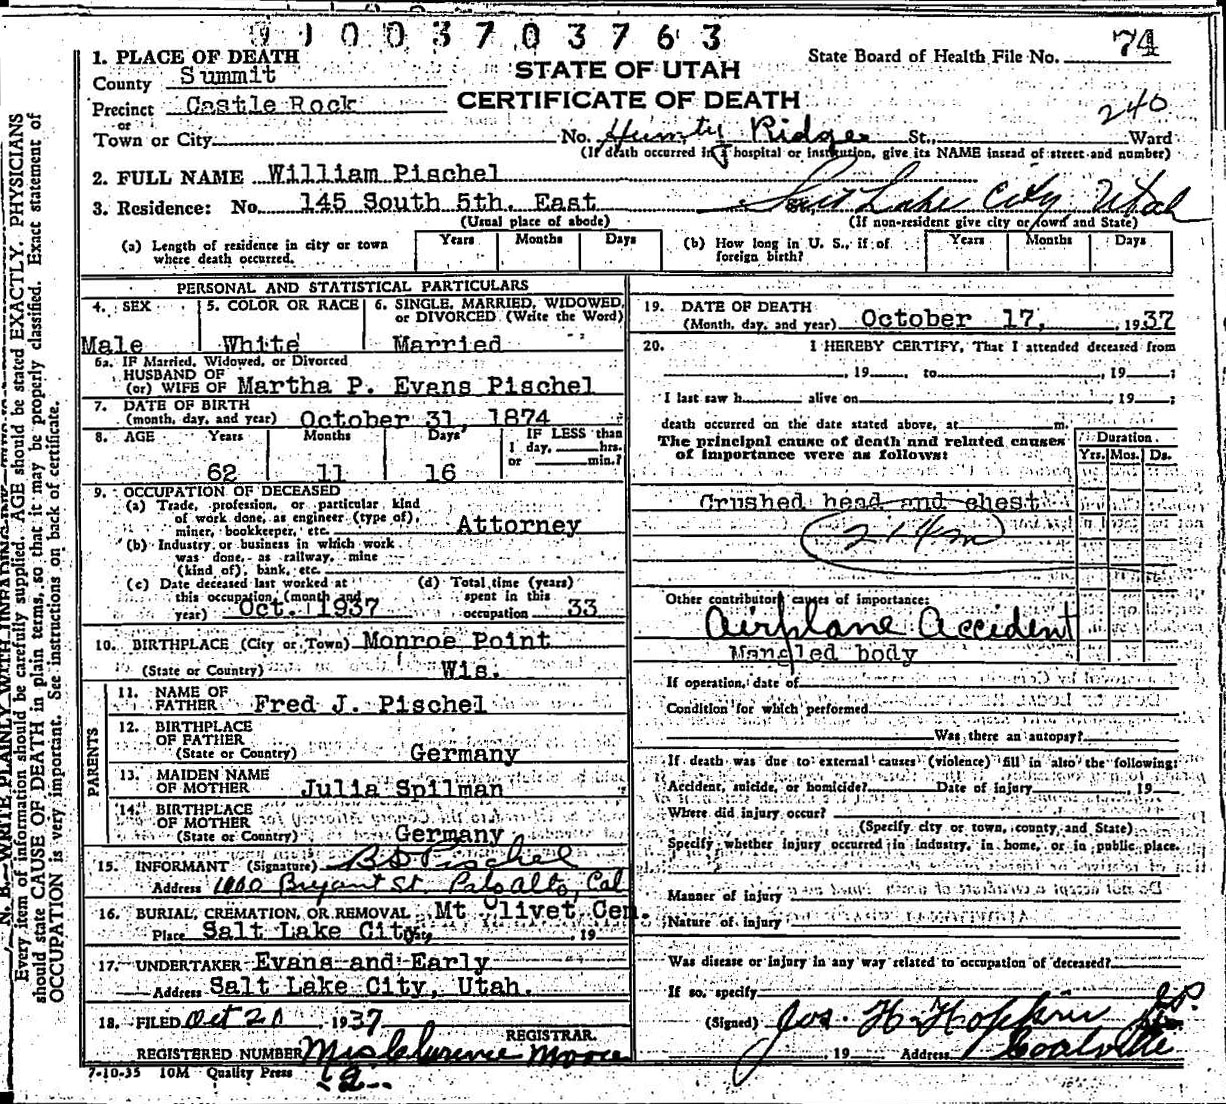 91003703763
1. PLACE OF DEATH
State Board of Health File No. 74
County Summit
STATE OF UTAH
Precinct Castle Rock
CERTIFICATE OF DEATH
240
or
Town or City
No. Humpty Ridge St., Ward
(If death occurred in a hospital or institution, give its NAME insead of street and number)
2. FULL NAME William Pischel
3. Residence: No. 145 South 5th. East St., Salt Lake City Utah
(Usual place of abode)
(If non-resident give city or town and State)
(a) Length of residence in city or town where death occurred.
Years Months Days
(b) How long in U. S., if of foreign birth?
Years Months Days
PERSONAL AND STATISTICAL PARTICULARS
4. SEX
Male
5. COLOR OR RACE
White
6. SINGLE, MARRIED, WIDOWED, or DIVORCED (Write the Word)
Married
6a. IF Married, Widowed, or Divorced
HUSBAND OF
(or) WIFE OF Martha P. Evans Pischel
7. DATE OF BIRTH
(month, day, and year) October 31, 1874
8. AGE Years Months Days IF LESS than
1 day, hrs.
or min.?
62 11 16
9. OCCUPATION OF DECEASED
(a) Trade, profession, or particular kind
of work done, as engineer (type of),
miner, bookkeeper, etc. Attorney
(b) Industry or business in which work
was done, as railway, mine
(kind of), bank, etc.
(c) Date deceased last worked at
this occupation, (month and
year) Oct. 1937
(d) Total time (years)
spent in this
occupation 33
10. BIRTHPLACE (City or Town) Monroe Point
(State or Country) Wis.
PARENTS
11. NAME OF
FATHER Fred J. Pischel
12. BIRTHPLACE
OF FATHER
(State or Country) Germany
13. MAIDEN NAME
OF MOTHER Julia Spilman
14. BIRTHPLACE
OF MOTHER
(State or Country) Germany
15. INFORMANT (Signature) B D Pischel
Address 1000 Bryant St. Palo Alto, Cal
16. BURIAL, CREMATION, OR REMOVAL Mt Olivet Cem.
Place Salt Lake City, 19
17. UNDERTAKER Evans and Early
Address Salt Lake City, Utah.
18. FILED Oct 20 1937
REGISTRAR.
REGISTERED NUMBER Mrs Clarence Moore
7-10-35 10M Quality Press
19. DATE OF DEATH
(Month, day, and year) October 17, 1937
20. I HEREBY CERTIFY, That I attended deceased from
, 19 to , 19 ;
I last saw h alive on , 19 ;
death occurred on the date stated above, at m.
The principal cause of death and related causes
of importance were as follows:
Duration
Yrs. Mos. Ds.
Crushed head and chest
Other contributory causes of importance:
Airplane Accident
Mangled body
If operation, date of
Condition for which performed
Was there an autopsy?
If death was due to external causes (violence) fill in also the following:
Accident, suicide, or homicide? Date of injury , 19
Where did injury occur?
(Specify city or town, county, and State)
Specify whether injury occurred in industry, in home, or in public place.
Manner of injury
Nature of injury
Was disease or injury in any way related to occupation of deceased?
If so, specify
(Signed) Jos. H. Hopkin J.P.
, 19 Address Coalville
Every item of information should be carefully supplied. AGE should be stated EXACTLY. PHYSICIANS
should state CAUSE OF DEATH in plain terms, so that it may be properly classified. Exact statement of
OCCUPATION is very important. See instructions on back of certificate.